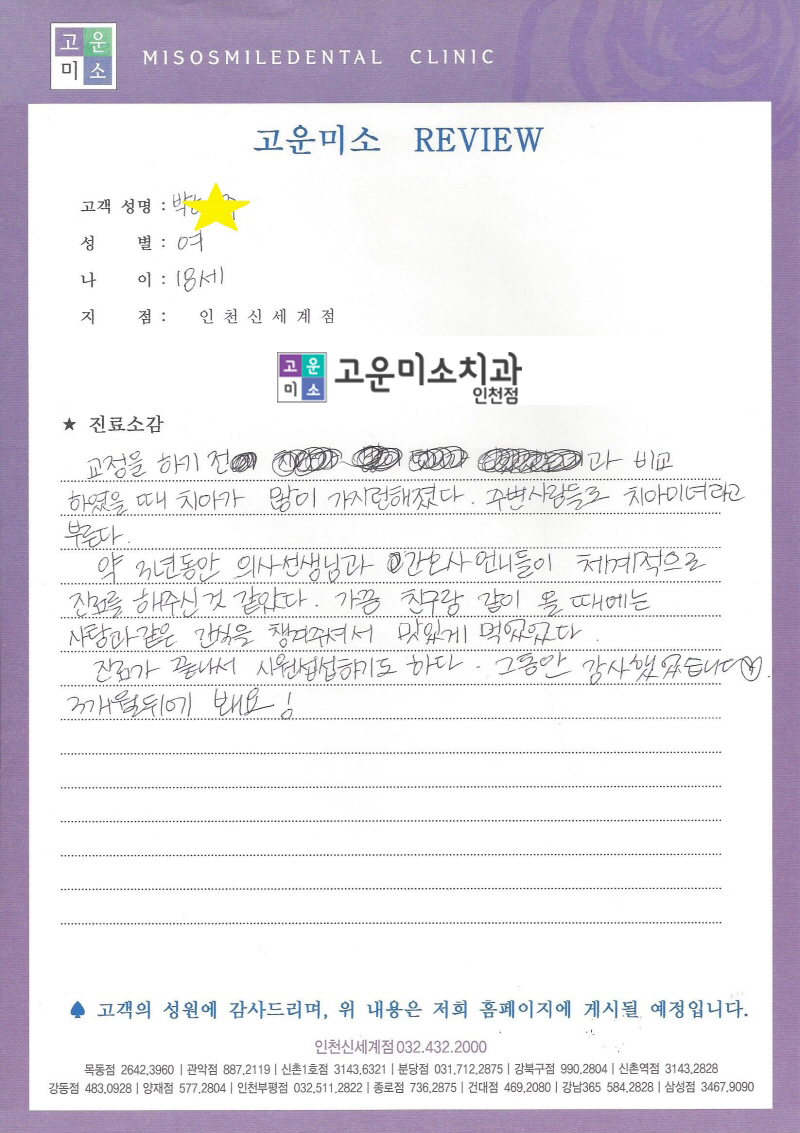 고운
미소
MISOSMILEDENTAL CLINIC
고운미소 REVIEW
고객 성명 : 박
성 별 : 여
나 이 : 18세
지 점 : 인천신세계점
고운
미소
고운미소치과
인천점
★ 진료소감
교정을 하기 전 과 비교
하였을 때 치아가 많이 가지런해졌다. 주변사람들로 치아미녀라고
부른다.
약 2년동안 의사선생님과 간호사언니들이 체계적으로
진료를 해주신 것 같았다. 가끔 친구랑 같이 올 때에는
사탕과같은 간식을 챙겨주셔서 맛있게 먹었었다.
진료가 끝나서 시원섭섭하기도 하다. 그동안 감사했었습니다.
3개월뒤에 봬요!
♠ 고객의 성원에 감사드리며, 위 내용은 저희 홈페이지에 게시될 예정입니다.
인천신세계점 032.432.2000
목동점 2642,3960 | 관악점 887,2119 | 신촌1호점 3143,6321 | 분당점 031,712,2875 | 강북구점 990,2804 | 신촌역점 3143,2828
강동점 483,0928 | 양재점 577,2804 | 인천부평점 032,511,2822 | 종로점 736,2875 | 건대점 469,2080 | 강남365 584,2828 | 삼성점 3467,9090